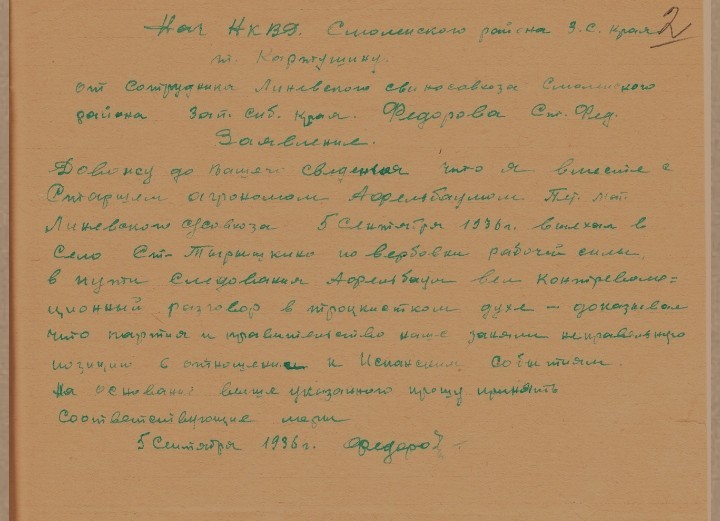 Нач НКВД. Смоленского района З.С. края 2
т. Картушину.
от сотрудника Линевского свиносовхоза Смоленского
района Зап. сиб. края. Федорова Ст. Фед.
Заявление.
Довожу до вашего сведения что я вместе с
Старшем агрономом Адфельбаумом. Пет. Мат.
Линевского с/совхоза 5 Сентября 1936 г. выехал в
Село Ст-Тырышкино по вербовки рабочей силы,
в пути следования Адфельбаум вел контрево­лю=
ционный разговор в троцкистком духе – доказывал
что партия и правительство наше заняли неправельную
позицию в отношение к Испанским событиям.
На основание выше указанного прошу принять
Соответствующие меры
5 Сентября 1936 г. Федоров